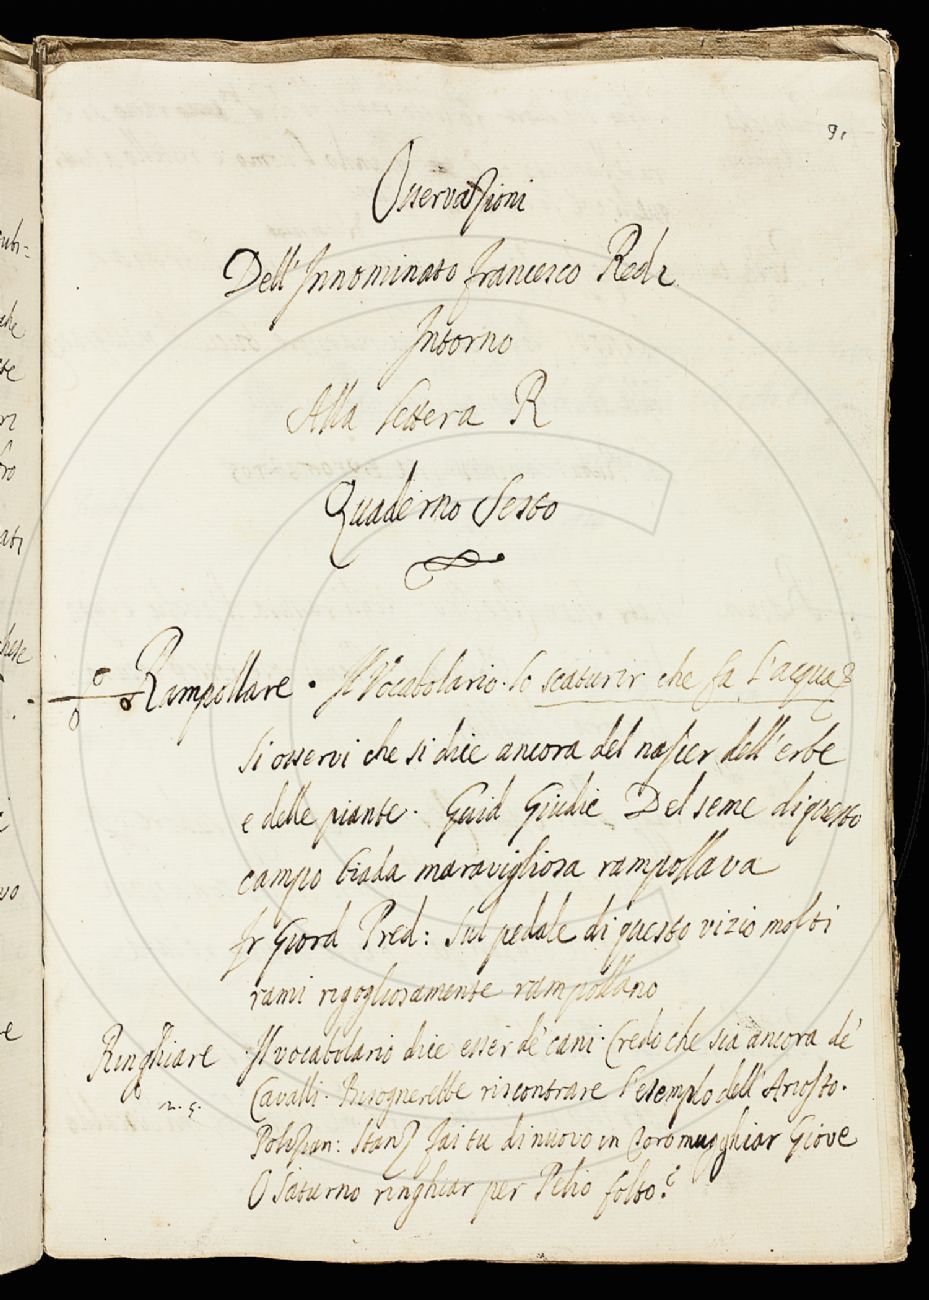 91
Osservazioni
Dell'Innominato Francesco Redi
Intorno
Alla Lettera R
Quaderno Sesto
Rampollare . Il Vocabolario. Lo scaturir che fa l'acqua &
Si osservi che si dice ancora del nascer dell'erbe
e delle piante. Guid Giudic Del seme di questo
campo biada maravigliosa rampollava
Fr Giord Pred: Sul pedale di questo vizio molti
rami rigogliosamente rampollano
Ringhiare Il vocabolario dice esser de' cani. Credo che sia ancora de'
Cavalli. Bisognerebbe riscontrare l'esemplo dell'Ariosto.
Polizian: Stanz fai tu di nuovo in Toro mugghiar Giove
O Saturno ringhiar per Pelio folto?